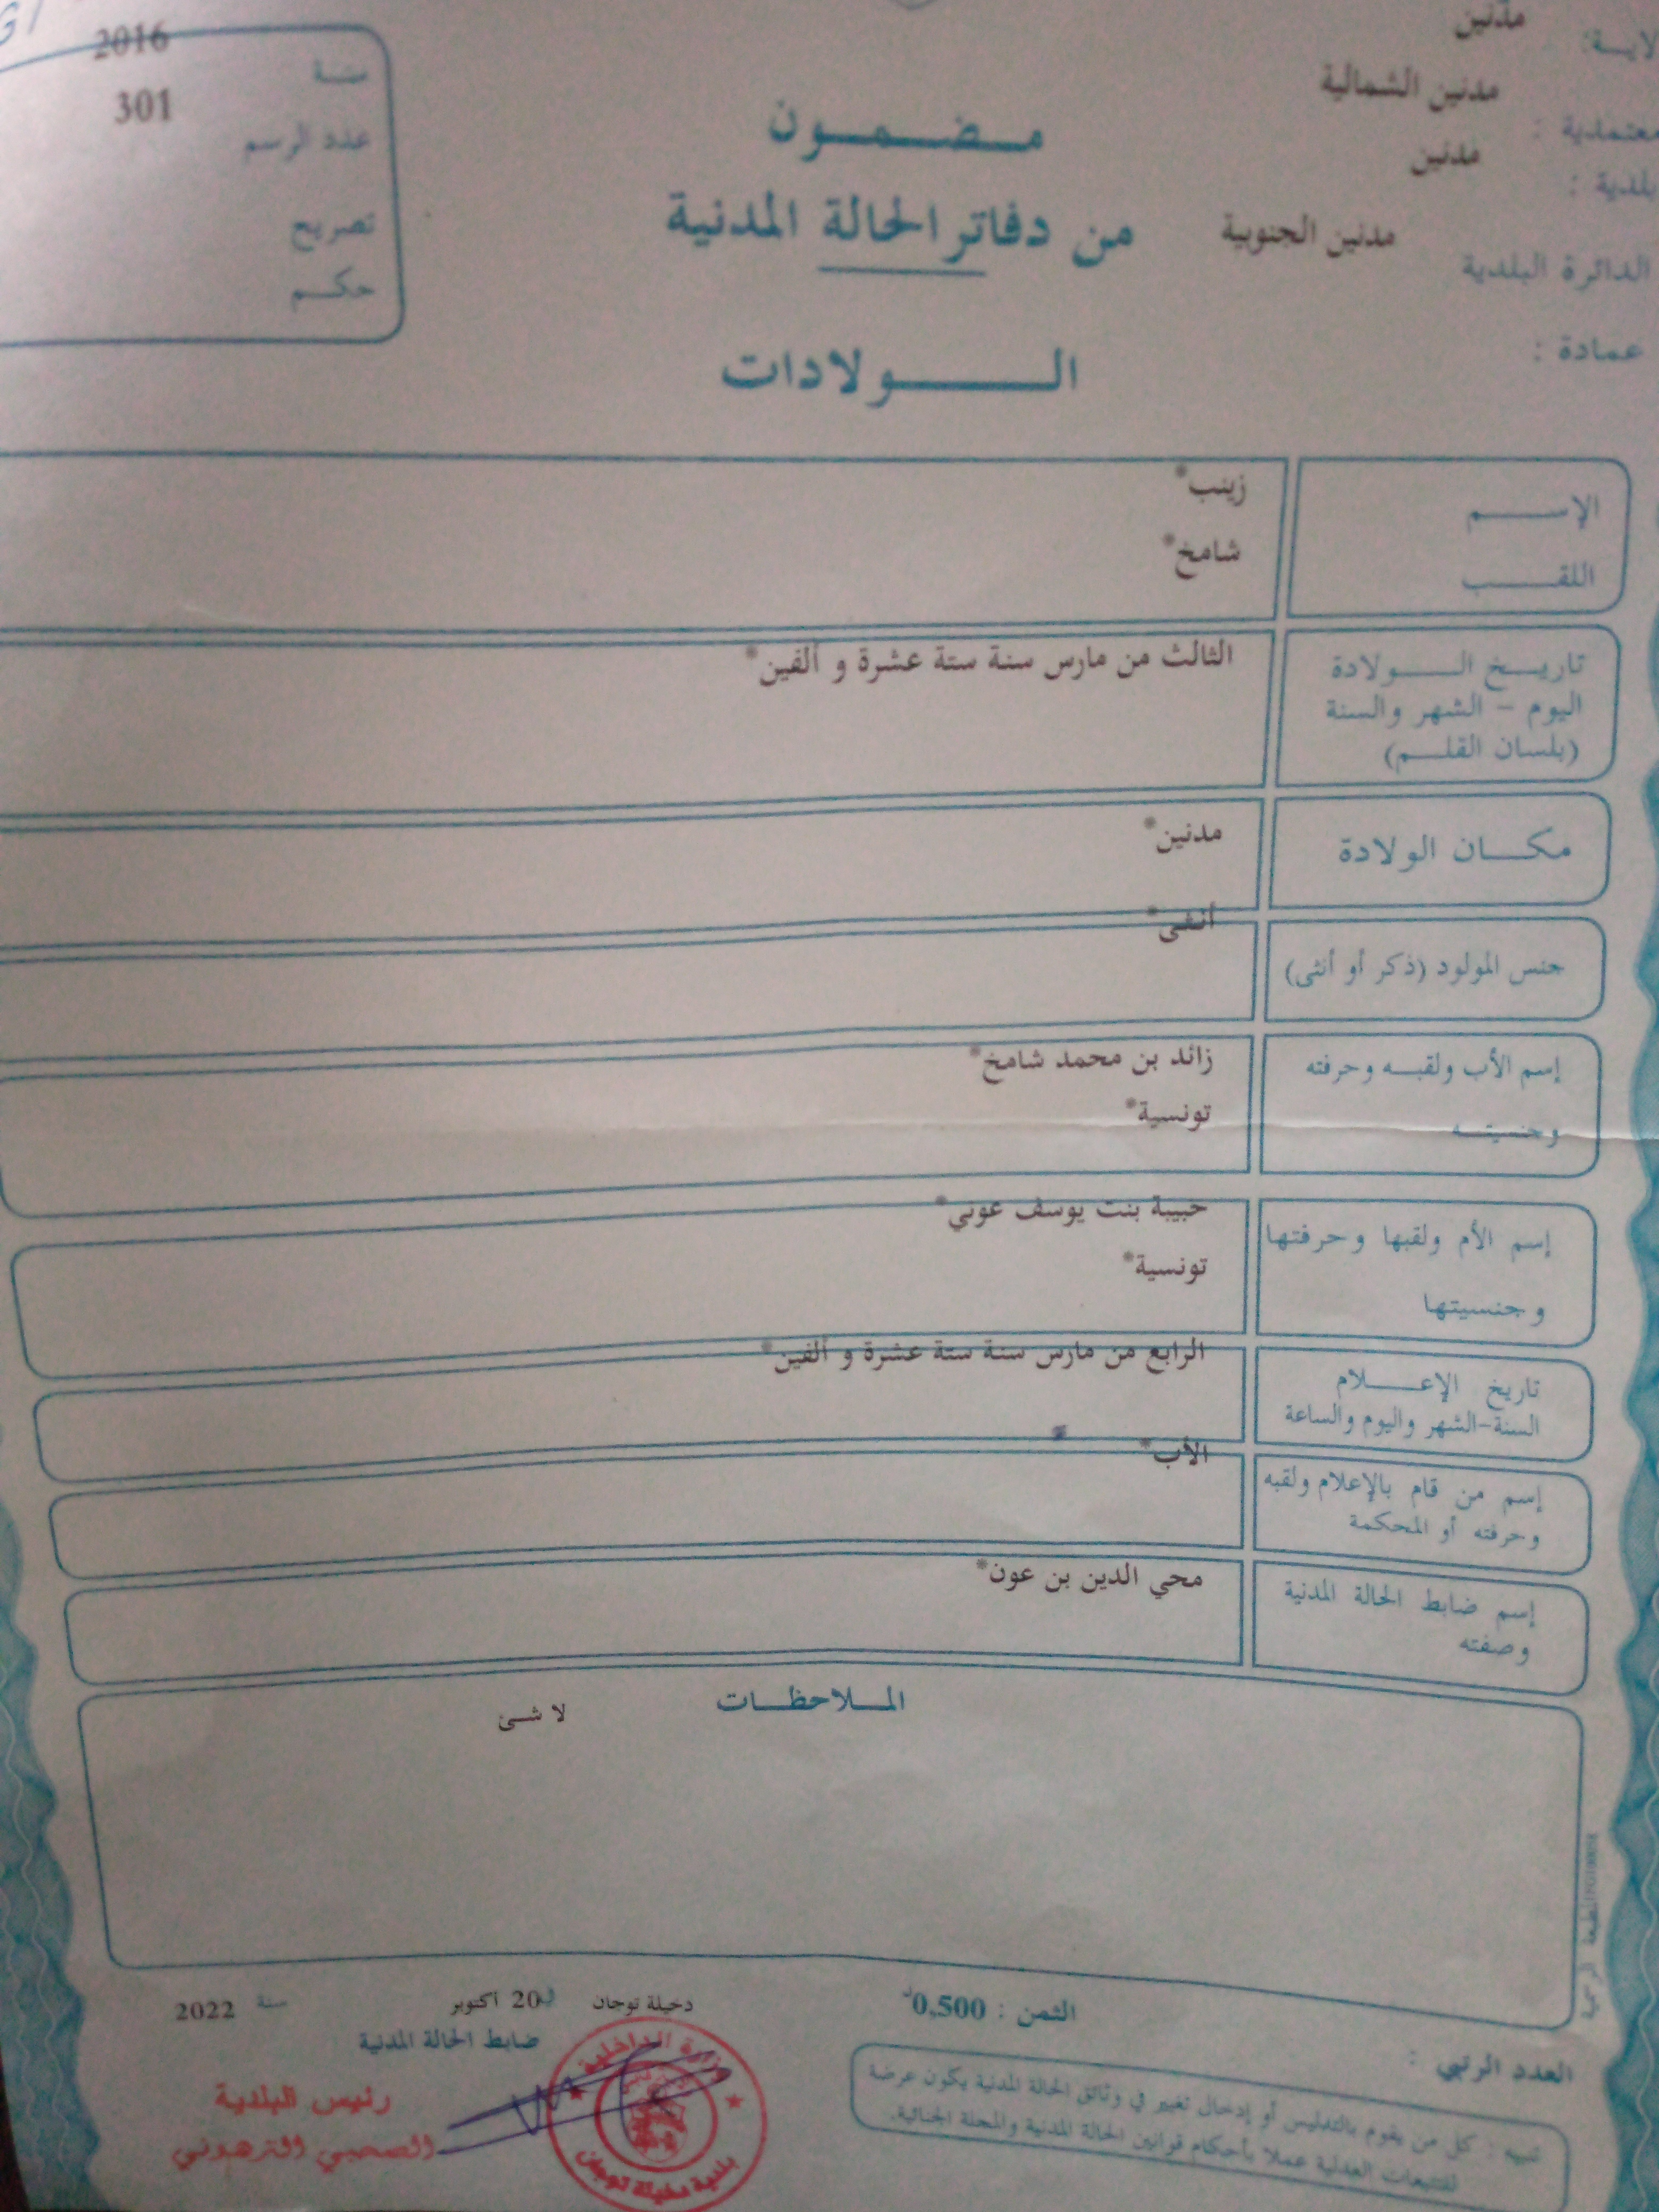 مدنين
لايـــة:
مدنين الشمالية
معتمادية :
مدنين
بلدية :
مدنين الجنوبية
الدائرة البلدية
عمادة :
مـــضـــمـــون
من دفاتر الحالة المدنية
الـــــولادات
2016
سنة
301
عدد الرسم
تصريح
حكـــم
الإســـــم
زينب*
اللقـــــب
شامخ*
تاريـــخ الـــــولادة
اليوم - الشهر والسنة
(بلسان القلـــم)
الثالث من مارس سنة ستة عشرة و ألفين*
مكـــان الولادة
مدنين*
جنس المولود (ذكر أو أنثى)
أنثى*
إسم الأب ولقبـــه وحرفته
وجنسيتـــه
زائد بن محمد شامخ*
تونسية*
إسم الأم ولقبها وحرفتها
وجنسيتها
حبيبة بنت يوسف عوني*
تونسية*
تاريخ الإعـــــلام
السنة-الشهر واليوم والساعة
الرابع من مارس سنة ستة عشرة و ألفين*
إسم من قام بالإعلام ولقبه
وحرفته أو المحكمة
الأب*
إسم ضابط الحالة المدنية
وصفته
محي الدين بن عون*
المـــلاحظـــات
لا شئ
المطبعة الرسمية
الثمن : 0,500د
دخيلة توجان في 20 أكتوبر سنة 2022
ضابط الحالة المدنية
رئيس البلدية
الصحبي الترهوني
وزارة الداخلية
بلدية دخيلة توجان
العدد الرتبي :
تنبيه : كل من يقوم بالتدليس أو إدخال تغيير في وثائق الحالة المدنية يكون عرضة
للتتبعات العدلية عملا بأحكام قوانين الحالة المدنية والمجلة الجنائية.